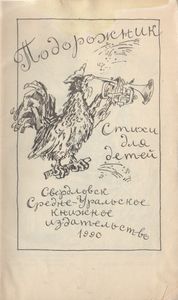 Подорожник
Стихи
для
детей
Свердловск
Средне-Уральское
книжное
издательство
1990